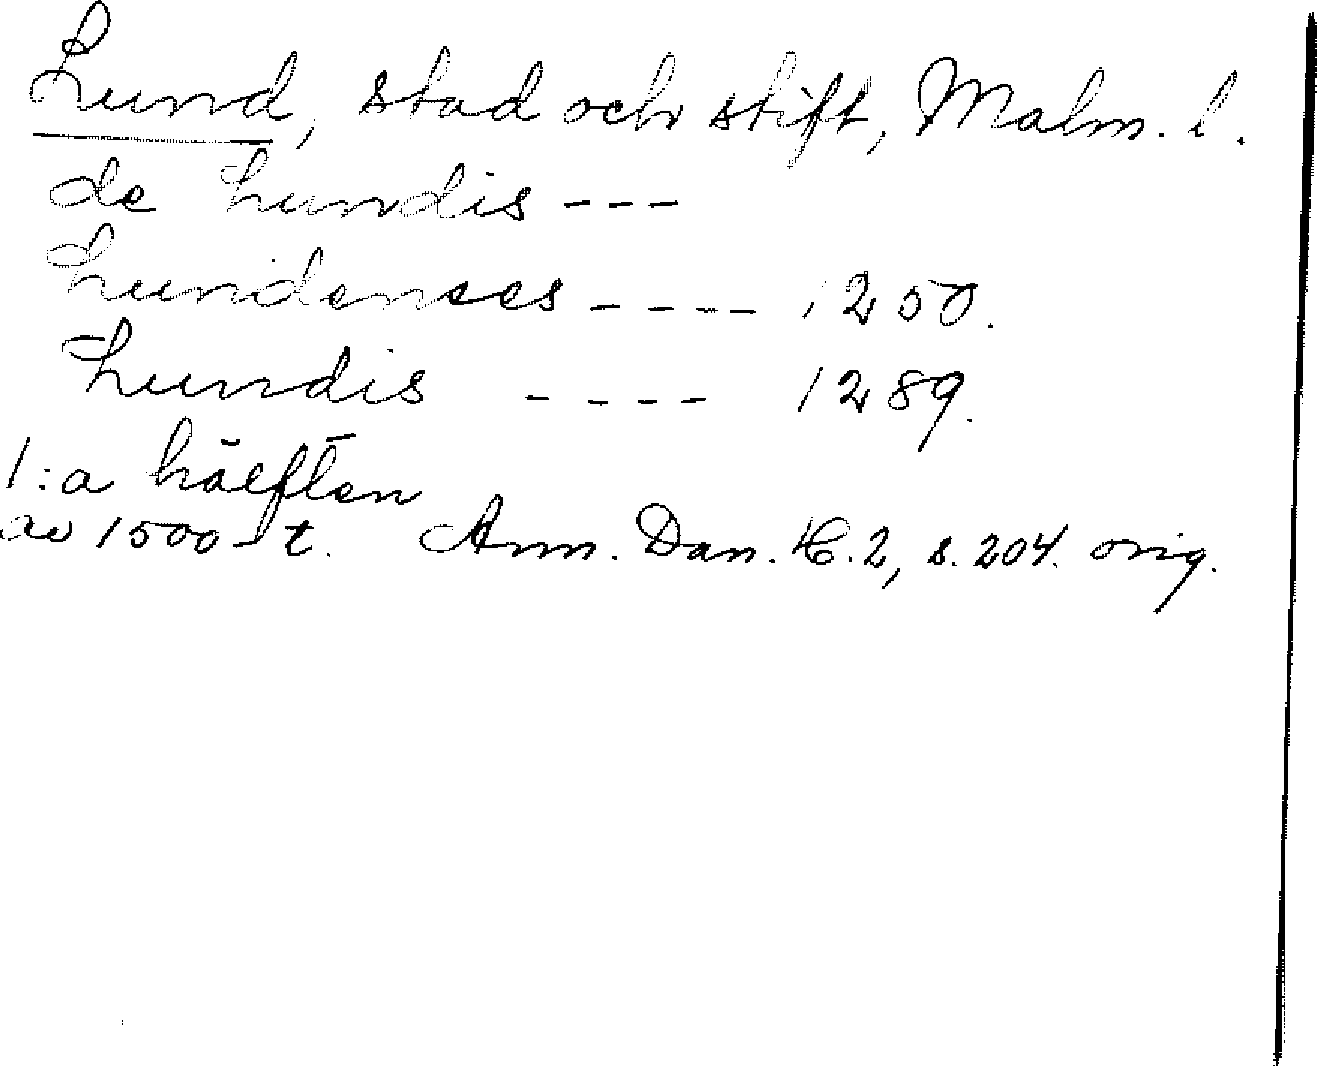 Lund, stad och stift, Malm. l.
de Lundis ---
Lundenses ---- 1250.
Lundis ---- 1289.
1:a hälften
av 1500-t. Ann. Dan. H. 2, s. 204. orig.